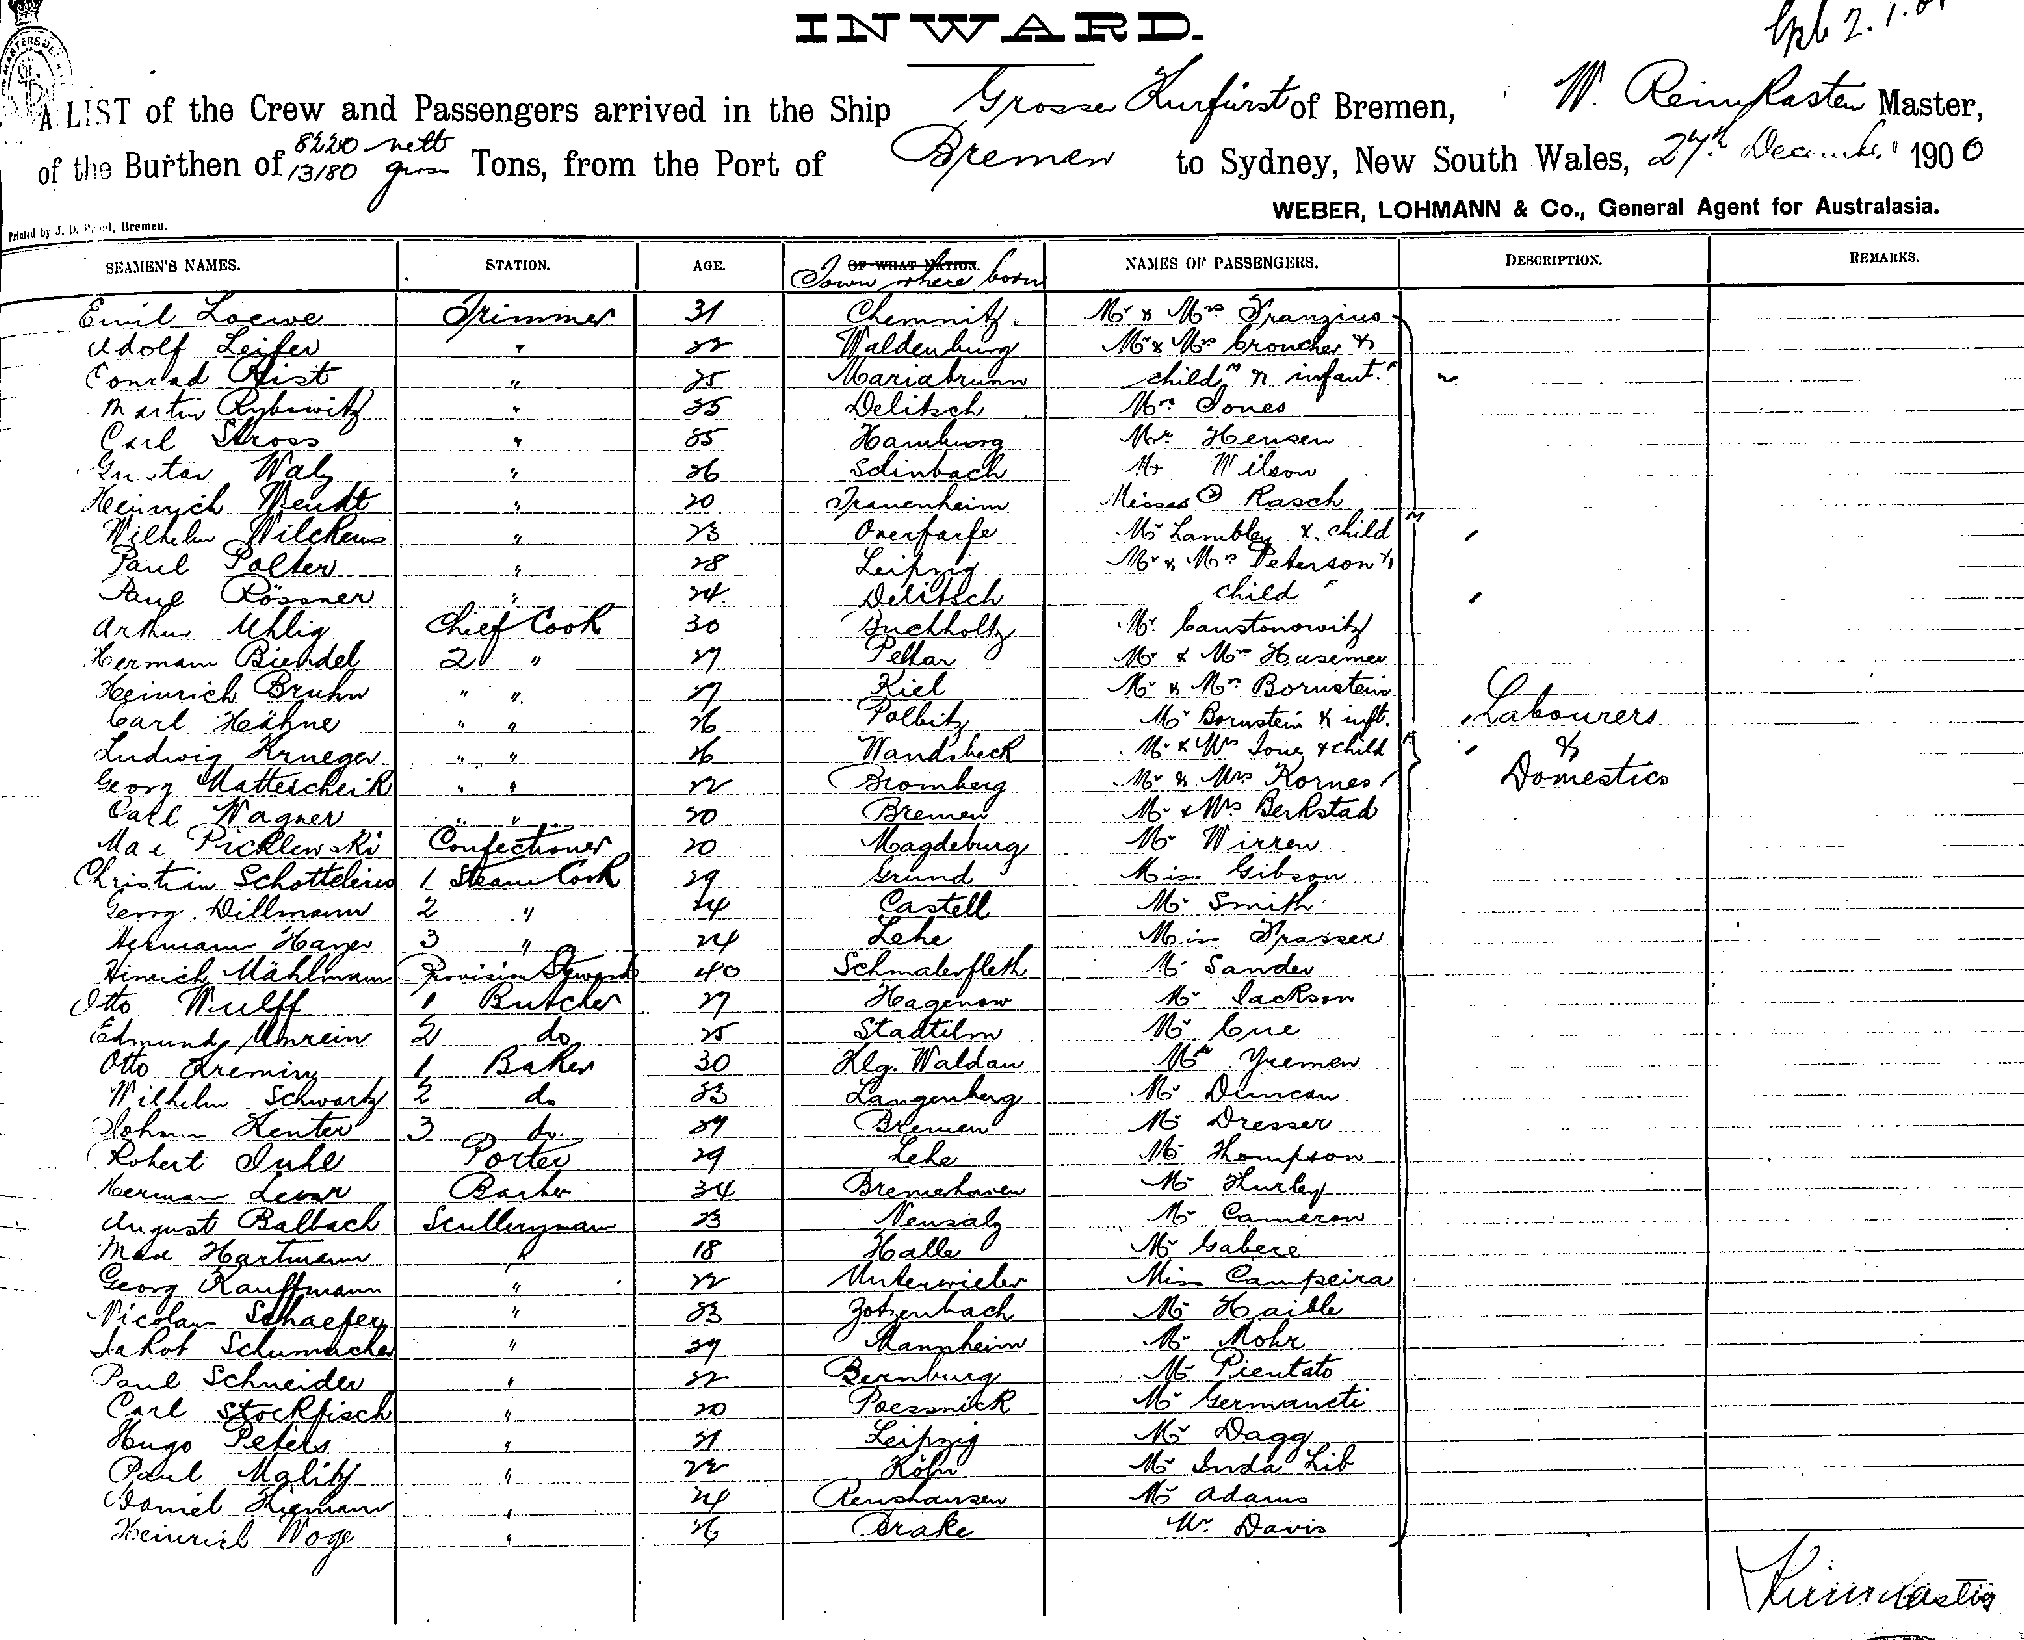 INWARD.
2.1.01
A LIST of the Crew and Passengers arrived in the Ship Grosser Kurfürst of Bremen, W. Reimkasten Master,
of the Burthen of 8220 nett 13180 gross Tons, from the Port of Bremen to Sydney, New South Wales, 27th December 1900
WEBER, LOHMANN & Co., General Agent for Australasia.
Printed by J. D. Bremen.
SEAMEN'S NAMES. STATION. AGE. OF WHAT NATION. Town where born NAMES OF PASSENGERS. DESCRIPTION. REMARKS.
Emil Loewe Trimmer 31 Chemnitz. Mr & Mrs Franzius
Adolf Leifer " 22 Waldenburg Mr & Mrs Croucher &
Conrad Rist " 25 Mariabrunn child " & infant "
Martin Rybswitz " 25 Delitsch Mr Jones
Carl Stross " 35 Hamburg Mr. Hensen
Gustav Walz " 26 Mr Wilson
Heinrich Wendt " 20 Misses Rasch
Wilhelm Wilckens " 23 Mr Lambley & child
Paul Polter " 28 Leipzig Mr & Mrs Peterson &
Paul Rössner " 24 Delitsch child "
Arthur Uhlig Chief Cook 30 Buchholtz Mr.
Hermann Biendel 2 " 27 Mr & Mrs Husemer
Heinrich Bruhn " " 27 Kiel Mr & Mrs Bornstein
Carl Hähne " " 26 Polbitz Mr Bornstein & inft. Labourers
Ludwig Krueger " " 26 Wandsbeck Mr & Mrs Jones & child &
Georg Mattescheik " " 22 Bromberg Mr & Mrs Kornes Domestics
Carl Wagner " " 20 Bremen Mr & Mrs Berkstad
Max Picklewski Confectioner 20 Magdeburg Mr Wirren
Christian Schottelius 1 Steam Cook 29 Grund Miss Gibson
Georg Dillmann 2 " 24 Castell Mr Smith
Hermann Hayer 3 " 24 Lehe Miss Frasser
Hinrich Mählmann Provision Steward 40 Schmalenfleth Mr Sander
Otto Wulff 1 Butcher 27 Hagenow Mr Jackson
Edmund Unrein 2 do 25 Stadtilm Mr Cue
Otto Freming 1 Baker 30 Klg. Waldau Mr Yremen
Wilhelm Schwartz 2 do 23 Langenberg Mr Duncan
Johann Kenter 3 do 29 Bremen Mr Dresser
Robert Ihle Porter 29 Lehe Mr Thompson
Herman Barber 34 Bremehaven Mr Hurley
August Balbach Sculleryman 23 Neusalz Mr Cameron
Max Hartmann " 18 Halle Mr Gabere
Georg Kauffmann " 22 Miss Campeira
Nicolaus Schaefer " 23 Zotzenbach Mr Haible
Jakob Schumacher " 29 Mannheim Mr Mohr
Paul Schneider " 22 Bernburg Mr Pientato
Carl Stockfisch " 20 Poessnick Mr Germaneti
Hugo Peters " 21 Leipzig Mr Dagg
Paul Malitz " 22 Köln Mr Inda Lib
Daniel " 24 Renshausen Mr Adams
Heinrich Woge " 26 Brake Mr. Davis
Reimkasten